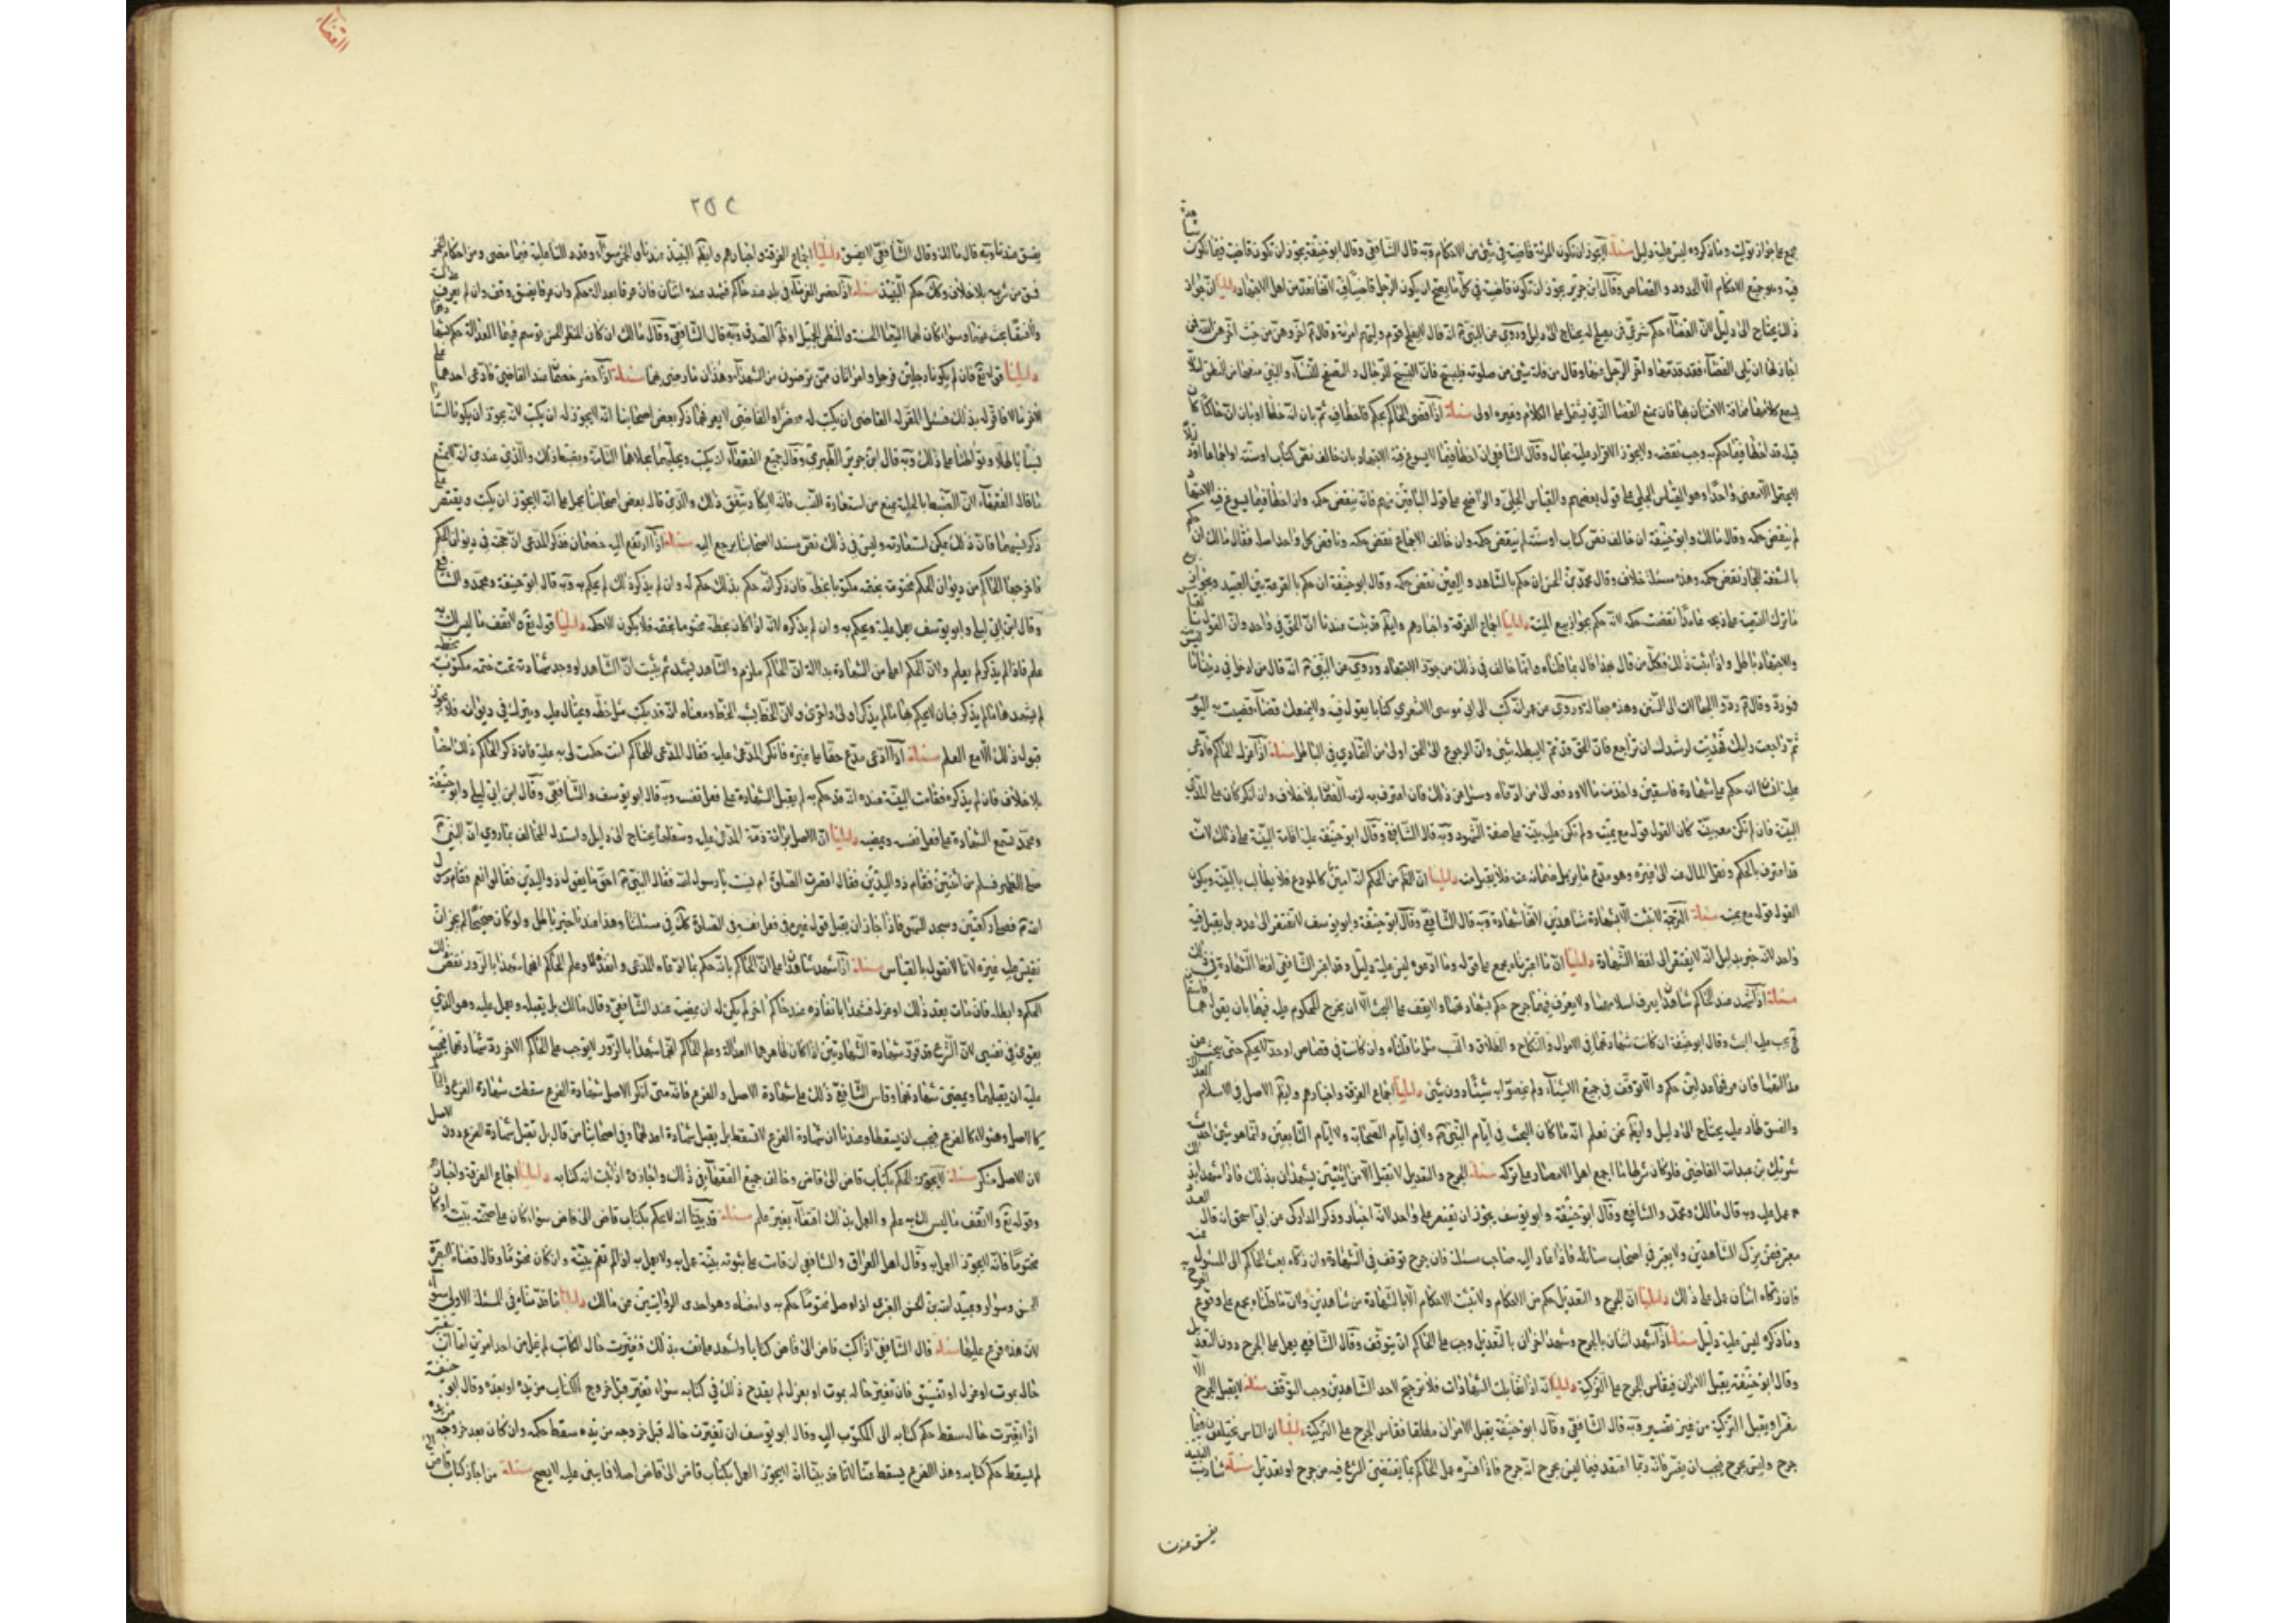 مجمع على جواز توليته وما ذكروه ليس عليه دليل مسئلة لا يجوز ان تكون المرئة قاضية في شئ من الاحكام وبه قال الشافعي وقال ابو حنيفة يجوز ان تكون قاضية فيما يجوز ان
فيه وهو جميع الاحكام الا الحدود والقصاص وقال ابن جرير يجوز ان تكون قاضية في كل ما يصح ان يكون الرجل قاضيا فيه لانها تعد من اهل الاجتهاد دليلنا ان جواز
ذلك يحتاج الى دليل لان القضاء حكم شرعي فمن يصلح له يحتاج الى دليل وروي عن النبي انه قال لا يفلح قوم وليتهم امرئة وقال اخروهن من حيث اخرهن الله فمن
اجاز لها ان تلى القضاء فقد قدمها واخر الرجل عنها وقال من فاته شئ في صلوته فليسبح فان التسبيح للرجال والتصفيق للنساء والنبي منعها من النطق لئلا
يسمع كلامها مخافة الافتتان بها فان تمنع القضاء الذي يشتمل على الكلام وغيره اولى مسئلة اذا قضى الحاكم بحكم فاخطأ فيه ثم بان انه خطأ او بان ان حاكما كان
قبله قد اخطأ فيما حكم به وجب نقضه ولا يجوز الاقرار عليه بحال وقال الشافعي ان اخطأ فيما لا يسوغ فيه الاجتهاد بان خالف نص كتاب او سنة او اجماعا او دليلا
لا يحتمل الا معنى واحدا وهو القياس الجلى على قول بعضهم والقياس الجلى والواضح على قول الباقين منهم فانه ينقض حكمه وان اخطأ فيما يسوغ فيه الاجتهاد
لم ينقض حكمه وقال مالك وابو حنيفة ان خالف نص كتاب او سنة لم ينقض حكمه وان خالف الاجماع نقض حكمه وناقض كل واحد اصله فقال مالك ان حكم
بالشفعة للجار نقض حكمه وهذه مسئلة خلاف وقال محمد بن الحسن ان حكم بالشاهد واليمين نقض حكمه وقال ابو حنيفة ان حكم بالقرعة بين العبيد وبجواز بيع
ما ترك التسمية على ذبحه عامدا نقضت حكمه لانه حكم بجواز بيع الميتة دليلنا اجماع الفرقة واخبارهم وايضا قد ثبت عندنا ان الحق في واحد وان القول بالقياس
والاجتهاد باطل واذا ثبت ذلك فكل من قال بهذا قال بما قلناه وانما خالف في ذلك من جوز الاجتهاد وروي عن النبي انه قال من ادخل في ديننا ما ليس
فهو رد وقال ردوا الجهالات الى السنن وهذه جهالة وروي عن عمر انه كتب الى ابي موسى الاشعري كتابا يقول فيه ولا يمنعك قضاء قضيت به اليوم
ثم راجعت رأيك فهديت لرشدك ان تراجع فان الحق قديم لا يبطله شئ وان الرجوع الى الحق اولى من التمادي في الباطل مسئلة اذا عزل الحاكم فادعى
عليه انسان انه حكم عليه بشهادة فاسقين واخذ منه مالا ودفعه الى من ادعاه وسئل عن ذلك فان اعترف به لزمه الضمان بلا خلاف وان انكر كان على المدعي
البينة فان لم تكن معه بينة كان القول قوله مع يمينه ولم تكن عليه بينة على صفة الشهود وبه قال الشافعي وقال ابو حنيفة عليه اقامة البينة على ذلك لانه
قد اعترف بالحكم ونقل المال عنه الى غيره وهو مدع ما يزيل ضمانه عنه فلا يقبل منه دليلنا ان الظاهر من الحكم انه امين كالمودع فلا يطالب بالبينة ويكون
القول قوله مع يمينه مسئلة الترجمة لا تثبت الا بشهادة شاهدين لانها شهادة وبه قال الشافعي وقال ابو حنيفة وابو يوسف لا تفتقر الى عدد بل يقبل فيه
واحد لانه خبر بدليل انه لا يفتقر الى لفظ الشهادة دليلنا ان ما اعتبرناه مجمع على قوله وما ادعوه ليس عليه دليل وقد اعتبر الشافعي لفظ الشهادة في ذلك
مسئلة اذا شهد عند الحاكم شاهدان يعرف اسلامهما ولا يعرف فيهما جرح حكم بشهادتهما ولا يقف على البحث الا ان يجرح المحكوم عليه فيهما بان يقول هما فاسقان
فحينئذ يجب عليه البحث وقال ابو حنيفة ان كانت شهادتهما في الاموال والنكاح والطلاق والنسب مثل ما قلناه وان كانت في قصاص او حد لا يحكم حتى يبحث عن
عدالتهما فان عرفهما عدلين حكم والا توقف في جميع الاشياء ولم يخصوا به شيئا دون شئ دليلنا اجماع الفرقة واخبارهم وايضا الاصل في الاسلام العدالة
والفسق طار عليه يحتاج الى دليل وايضا نحن نعلم انه ما كان البحث في ايام النبي ولا في ايام الصحابة ولا ايام التابعين وانما هو شئ احدثه
شريك بن عبد الله القاضي فلو كان شرطا ما اجمع اهل الامصار على تركه مسئلة الجرح والتعديل لا تقبل الا من اثنين يشهدان بذلك فاذا شهدا بذلك
عمل عليه وبه قال مالك ومحمد والشافعي وقال ابو حنيفة وابو يوسف يجوز ان يقتصر على واحد لانه اخبار وذكر الداركي عن ابي اسحق انه قال العدد
معتبر فيمن يزكي الشاهدين ولا يعتبر في اصحاب مسائله فاذا عاد اليه صاحب مسئلة فان جرح توقف في الشهادة وان زكاه بعث الحاكم الى المسئول عنه
فان زكاه اثنان عمل على ذلك دليلنا ان الجرح والتعديل حكم من الاحكام ولا تثبت الاحكام الا بالشهادة من شاهدين ولان ما قلناه مجمع على وقوع الجرح به
وما ذكره ليس عليه دليل مسئلة اذا شهد اثنان بالجرح وشهد اخران بالتعديل وجب على الحاكم ان يتوقف وقال الشافعي يعمل على الجرح دون التعديل
وقال ابو حنيفة يقبل الامران فيقاس الجرح على التزكية دليلنا انه اذا تقابلت الشهادات فلا ترجيح لاحد الشاهدين وجب التوقف مسئلة لا يقبل الجرح الا
مفسرا ويقبل التزكية من غير تفسير وبه قال الشافعي وقال ابو حنيفة يقبل الامران مطلقا فقاس الجرح على التزكية دليلنا ان الناس يختلفون فيما
جرح وليس بجرح فيجب ان يفسر فانه ربما اعتقد فيما ليس بجرح انه جرح فاذا فسره عمل الحاكم بما يقتضى الشرع فيه من جرح او تعديل مسئلة شارب النبيذ
يفسق عندنا
القضاء
٢٥٤
يفسق عندنا وبه قال مالك وقال الشافعي لا يفسق دليلنا اجماع الفرقة واخبارهم وايضا النبيذ عندنا والخمر سواء وقد دللنا عليه فيما مضى ومن احكام الخمر
فسق من شربه بلا خلاف وكذلك حكم النبيذ مسئلة اذا حضر الغرباء في بلد عند حاكم فشهد عنده اثنان فان عرفا بعدالة حكم وان عرفا بفسق وقف وان لم يعرف
والفسق بحث عنهما وسواء كان لهما السيماء الحسنة والمنظر الجميل او ظاهر الصدق وبه قال الشافعي وقال مالك ان كان المنظر الحسن توسم فيهما العدالة حكم بشهادتهما
دليلنا قوله تع فان لم يكونا رجلين فرجل وامرأتان ممن ترضون من الشهداء وهذان ما رضي بهما مسئلة اذا حضر خصمان عند القاضي فادعى احدهما على
الاخر مالا فاقر له بذلك فسئل المقر له القاضي ان يكتب له محضرا والقاضي لا يعرفهما ذكر بعض اصحابنا انه لا يجوز له ان يكتب لانه يجوز ان يكونا استعارا
نسبا باطلا وتواطئا على ذلك وبه قال ابن جرير الطبري وقال جميع الفقهاء انه يكتب ويحليهما بحلاهما التامة ويضبط ذلك والذي عندي انه لا يمتنع
ما قاله الفقهاء لان الضبط بالحلية يمنع من استعارة النسب فانه لا يكاد يتفق ذلك والذي قاله بعض اصحابنا يحمل على انه لا يجوز ان يكتب ويقتصر على
ذكر نسبهما فان ذلك يمكن استعارته وليس في ذلك نص مسند اصحابنا يرجع اليه مسئلة اذا ارتفع اليه خصمان فذكر المدعى ان حجته في ديوان الحكم
فاخرجها الحاكم من ديوان الحكم مختومة بختمه مكتوبا بخطه فان ذكر انه حكم بذلك حكم له وان لم يذكر ذلك لم يحكم به وبه قال ابو حنيفة ومحمد والشافعي
وقال ابن ابي ليلى وابو يوسف يعمل عليه ويحكم به وان لم يذكره لانه اذا كان بخطه مختوما بختمه فلا يكون الا حكمه دليلنا قوله تع ولا تقف ما ليس لك به
علم فاذا لم يذكر لم يعلم ولان الحكم اعلى من الشهادة بدلالة ان الحاكم ملزم والشاهد يشهد ثم ثبت ان الشاهد لو وجد شهادته تحت ختمه مكتوبة بخطه
لم يشهد بها ما لم يذكر فبان لا يحكم بها ما لم يذكر اولى واحرى ولان الخط يشبه الخط ومعناه انه قد يكتب مثل خطه ويحتال عليه ويترك في ديوانه فلا يجوز
قبول ذلك الا مع العلم مسئلة اذا ادعى مدع حقا على غيره فانكر المدعى عليه فقال المدعى للحاكم انت حكمت لي به عليه فان ذكر الحاكم ذلك امضاه
بلا خلاف فان لم يذكره فقامت البينة عنده انه قد حكم به لم يقبل الشهادة على فعل نفسه وبه قال ابو يوسف والشافعي وقال ابن ابي ليلى وابو حنيفة
ومحمد تسمع الشهادة على فعل نفسه ويمضيه دليلنا ان الاصل برائة ذمة المدعى عليه وشغلها يحتاج الى دليل واستدل المخالف بما روي ان النبي
صلى العصر فسلم من اثنتين فقام ذو اليدين فقال اقصرت الصلوة ام نسيت يا رسول الله فقال النبي احق ما يقول ذو اليدين فقالوا نعم فقام رسول
الله فصلى ركعتين وسجد السهو فاذا جاز ان يقبل قول غيره في فعل نفسه في الصلوة كذلك في مسئلتنا وهذا عندنا خبر باطل ولو كان صحيحا لم يجز ان
نقيس عليه غيره لانا لا نقول بالقياس مسئلة اذا شهد شاهدان على ان الحاكم بانه حكم بما ادعاه المدعى وانفذه وعلم الحاكم انهما شهدا بالزور نقض ذلك
الحكم وابطله فان مات بعد ذلك او عزل فشهدا بانفاذه عند حاكم اخر لم يكن له ان يمضيه عند الشافعي وقال مالك بل يقبله ويعمل عليه وهو الذي
يقوى في نفسي لان الشرع قد قرر شهادة الشاهدين اذا كان ظاهرهما العدالة وعلم الحاكم انهما شهدا بالزور لا يوجب على الحاكم الاخر رد شهادتهما فيجب
عليه ان يقبلهما ويمضى شهادتهما وقاس الشافعي ذلك على شهادة الاصل والفرع فانه متى انكر الاصل شهادة الفرع سقطت شهادة الفرع والحاكم
كالاصل وهؤلاء كالفرع فيجب ان يسقط وعندنا ان شهادة الفرع لا تسقط بل يقبل شهادة اعدلهما وفي اصحابنا من قال بل تقبل شهادة الفرع دون الاصل
لان الاصل منكر مسئلة لا يجوز الحكم بكتاب قاض الى قاض وخالف جميع الفقهاء في ذلك واجازوه اذا ثبت انه كتابه دليلنا اجماع الفرقة واخبارهم
وقوله تع ولا تقف ما ليس لك به علم والعمل بذلك اقتفاء بغير علم مسئلة قد بينا انه لا يحكم بكتاب قاض الى قاض سواء كان على صحته بينة او كان
مختوما فانه لا يجوز العمل به وقال اهل العراق والشافعي ان قامت على ثبوته بينة عمل به ولا يعمل به اذا لم تقم بينة وان كان مختوما وقال قضاة البصرة
الحسن وسوار وعبيد الله بن الحسن العنبري اذا وصل مختوما حكم به وامضاه وهو احدى الروايتين عن مالك دليلنا ما قدمناه في المسئلة الاولى سواء
لان هذه فرع عليها مسئلة قال الشافعي اذا كتب قاض الى قاض كتابا واشهد على نفسه بذلك فتغيرت حال الكاتب لم يخل من احد امرين اما ان تغير
حاله بموت او عزل او تفسيق فان تغير حاله بموت او بعزل لم يقدح ذلك في كتابه سواء تغير قبل خروج الكتاب من يده او بعده وقال ابو حنيفة
اذا تغيرت حاله سقط حكم كتابه الى المكتوب اليه وقال ابو يوسف ان تغيرت حاله قبل خروجه من يده سقط حكمه وان كان بعد خروجه من يده
لم يسقط حكم كتابه وهذا الفرع يسقط عنا لانا قد بينا انه لا يجوز العمل بكتاب قاض الى قاض اصلا فما يبنى عليه لا يصح مسئلة من اجاز كتاب قاض